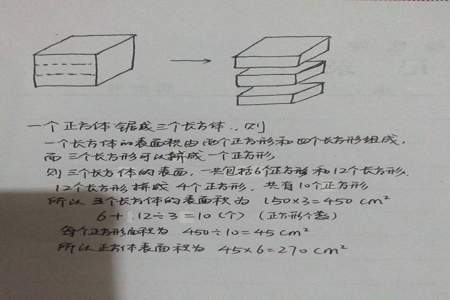 一个正方体锯成三个长方体，则
一个长方体的表面积由两个正方形和四个长方形组成，
而三个长方形可以拼成一个正方形，
则三个长方体的表面，一共包括6个正方形和12个长方形.
12个长方形拼成4个正方形，共有10个正方形
所以三个长方体的表面积为 150×3=450 cm²
6+12÷3=10(个) (正方形个数)
每个正方形面积为 450÷10=45 cm²
所以正方体表面积为 45×6=270 cm²